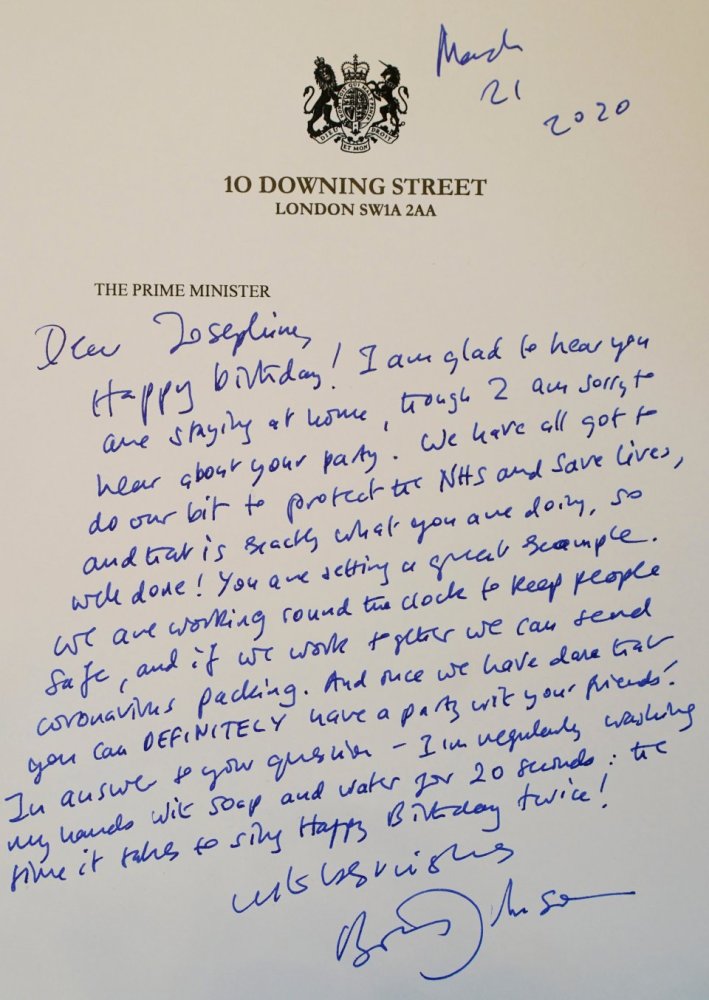 March
21
2020
DIEU ET MON DROIT
10 DOWNING STREET
LONDON SW1A 2AA
THE PRIME MINISTER
Dear Josephine,
Happy birthday! I am glad to hear you
are staying at home, though I am sorry to
hear about your party. We have all got to
do our bit to protect the NHS and save lives,
and that is exactly what you are doing, so
well done! You are setting a great example.
We are working round the clock to keep people
safe, and if we work together we can send
coronavirus packing. And once we have done that
you can DEFINITELY have a party with your friends!
In answer to your question - I'm regularly washing
my hands with soap and water for 20 seconds: the
time it takes to sing Happy Birthday twice!
with best wishes
Boris Johnson